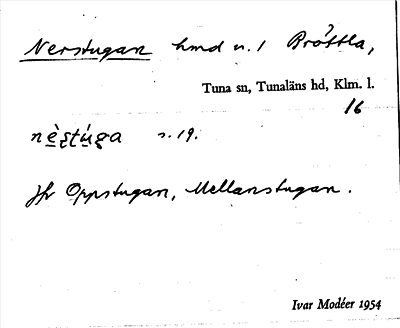 Nerstugan hmd n. 1 Bröttla,
Tuna sn, Tunaläns hd, Klm. l.
16
nèştúga s. 19.
Jfr Oppstugan, Mellanstugan.
Ivar Modéer 1954